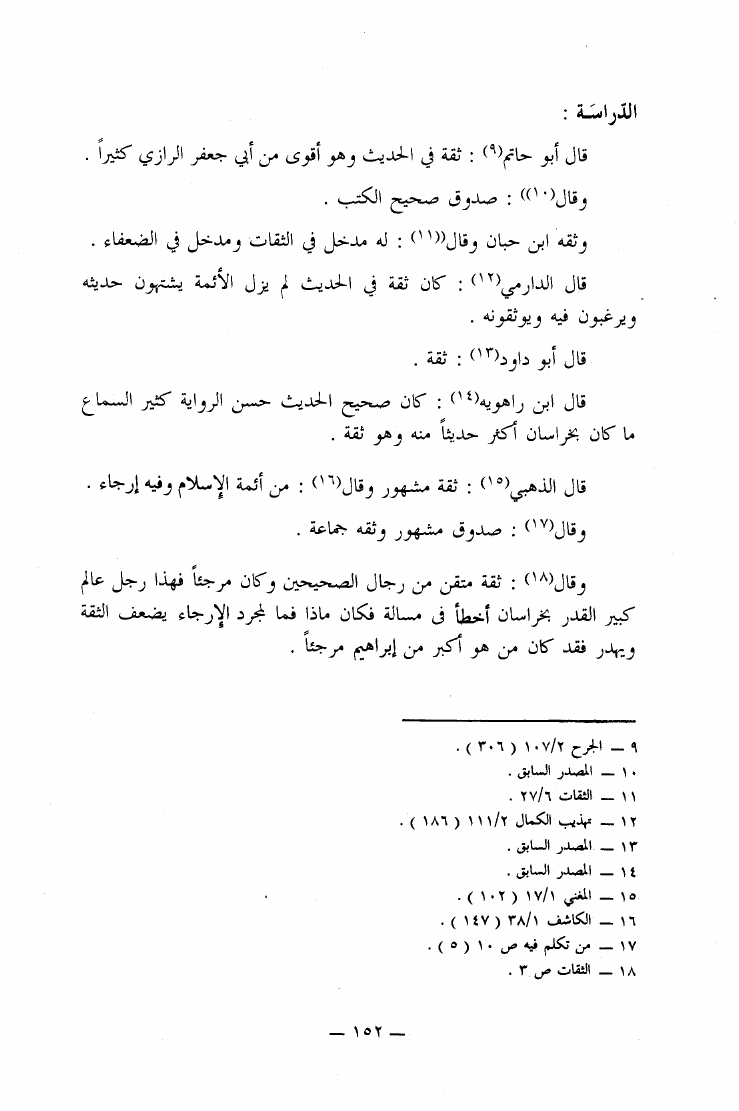 الدّراسَة :
قال أبو حاتم(٩) : ثقة في الحديث وهو أقوى من أبي جعفر الرازي كثيراً .
وقال(١٠)) : صدوق صحيح الكتب .
وثقه ابن حبان وقال((١١) : له مدخل في الثقات ومدخل في الضعفاء .
قال الدارمي(١٢) : كان ثقة في الحديث لم يزل الأئمة يشتهون حديثه
ويرغبون فيه ويوثقونه .
قال أبو داود(١٣) : ثقة .
قال ابن راهويه(١٤) : كان صحيح الحديث حسن الرواية كثير السماع
ما كان بخراسان أكثر حديثاً منه وهو ثقة .
قال الذهبي(١٥) : ثقة مشهور وقال(١٦) : من أئمة الإسلام وفيه إرجاء .
وقال(١٧) : صدوق مشهور وثقه جماعة .
وقال(١٨) : ثقة متقن من رجال الصحيحين وكان مرجئاً فهذا رجل عالم
كبير القدر بخراسان أخطأ في مسالة فكان ماذا فما لمجرد الإرجاء يضعف الثقة
ويهدر فقد كان من هو أكبر من إبراهيم مرجئاً .
٩ — الجرح ١٠٧/٢ ( ٣٠٦ ) .
١٠ — المصدر السابق .
١١ — الثقات ٢٧/٦ .
١٢ — تهذيب الكمال ١١١/٢ ( ١٨٦ ) .
١٣ — المصدر السابق .
١٤ — المصدر السابق .
١٥ — المغني ١٧/١ ( ١٠٢ ) .
١٦ — الكاشف ٣٨/١ ( ١٤٧ ) .
١٧ — من تكلم فيه ص ١٠ ( ٥ ) .
١٨ — الثقات ص ٣ .
— ١٥٢ —